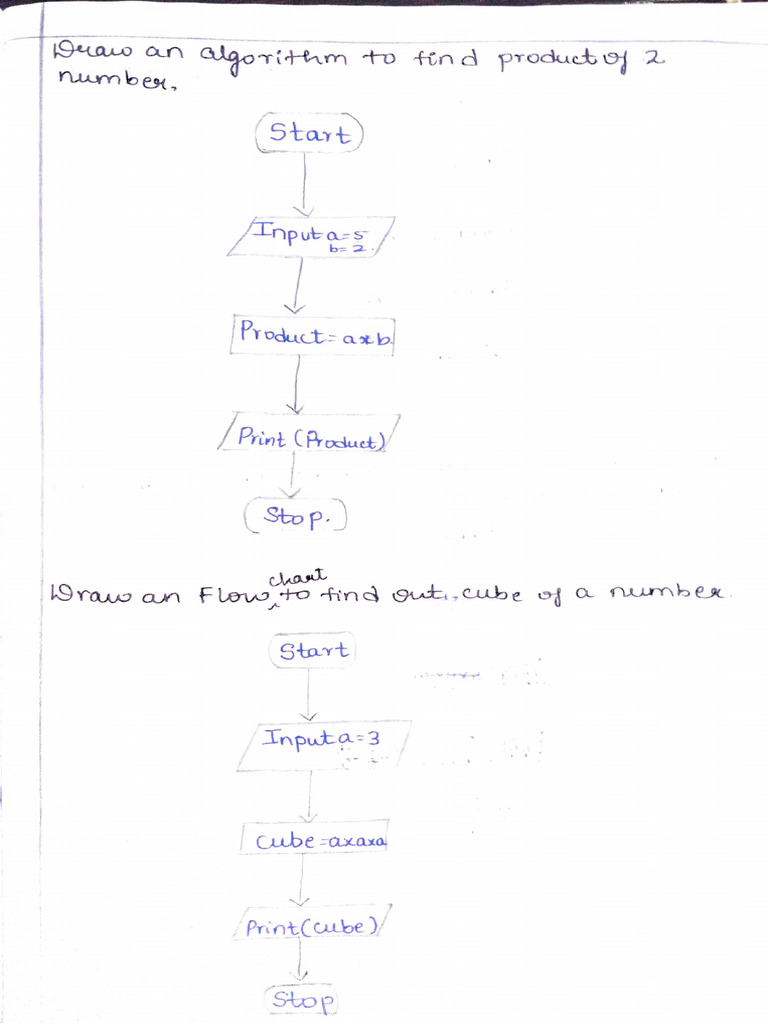 Draw an algorithm to find product of 2
number.
Start
Input a=5
b=2.
Product=a*b.
Print (Product)
Stop.
Draw an Flow chart to find out cube of a number.
Start
Input a=3
Cube=axaxa
Print(cube)
Stop